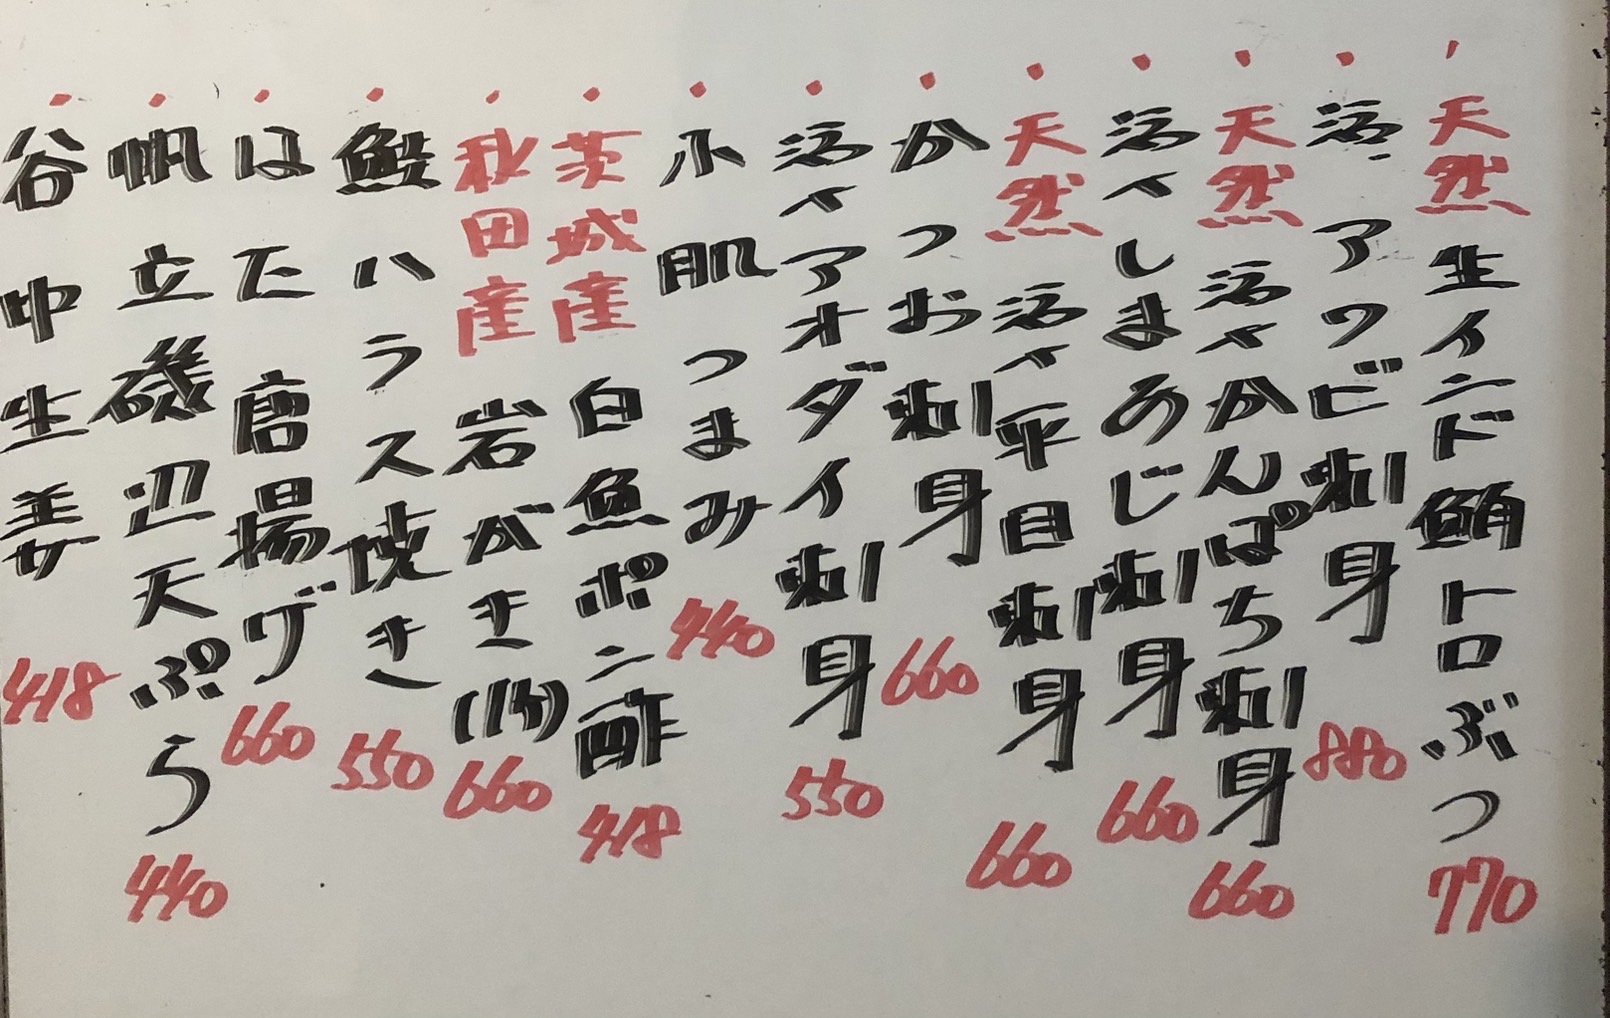 ・天然生インド鮪トロぶつ 770
・活アワビ刺身 880
・天然活〆かんぱち刺身 660
・活〆しまあじ刺身 660
・天然活〆平目刺身 660
・かつお刺身 660
・活〆アオダイ刺身 550
・小肌つまみ 440
・茨城産白魚ポン酢 418
・秋田産岩がき(1ケ) 660
・鮭ハラス焼き 550
・はた唐揚げ 660
・帆立磯辺天ぷら 440
・谷中生姜 418